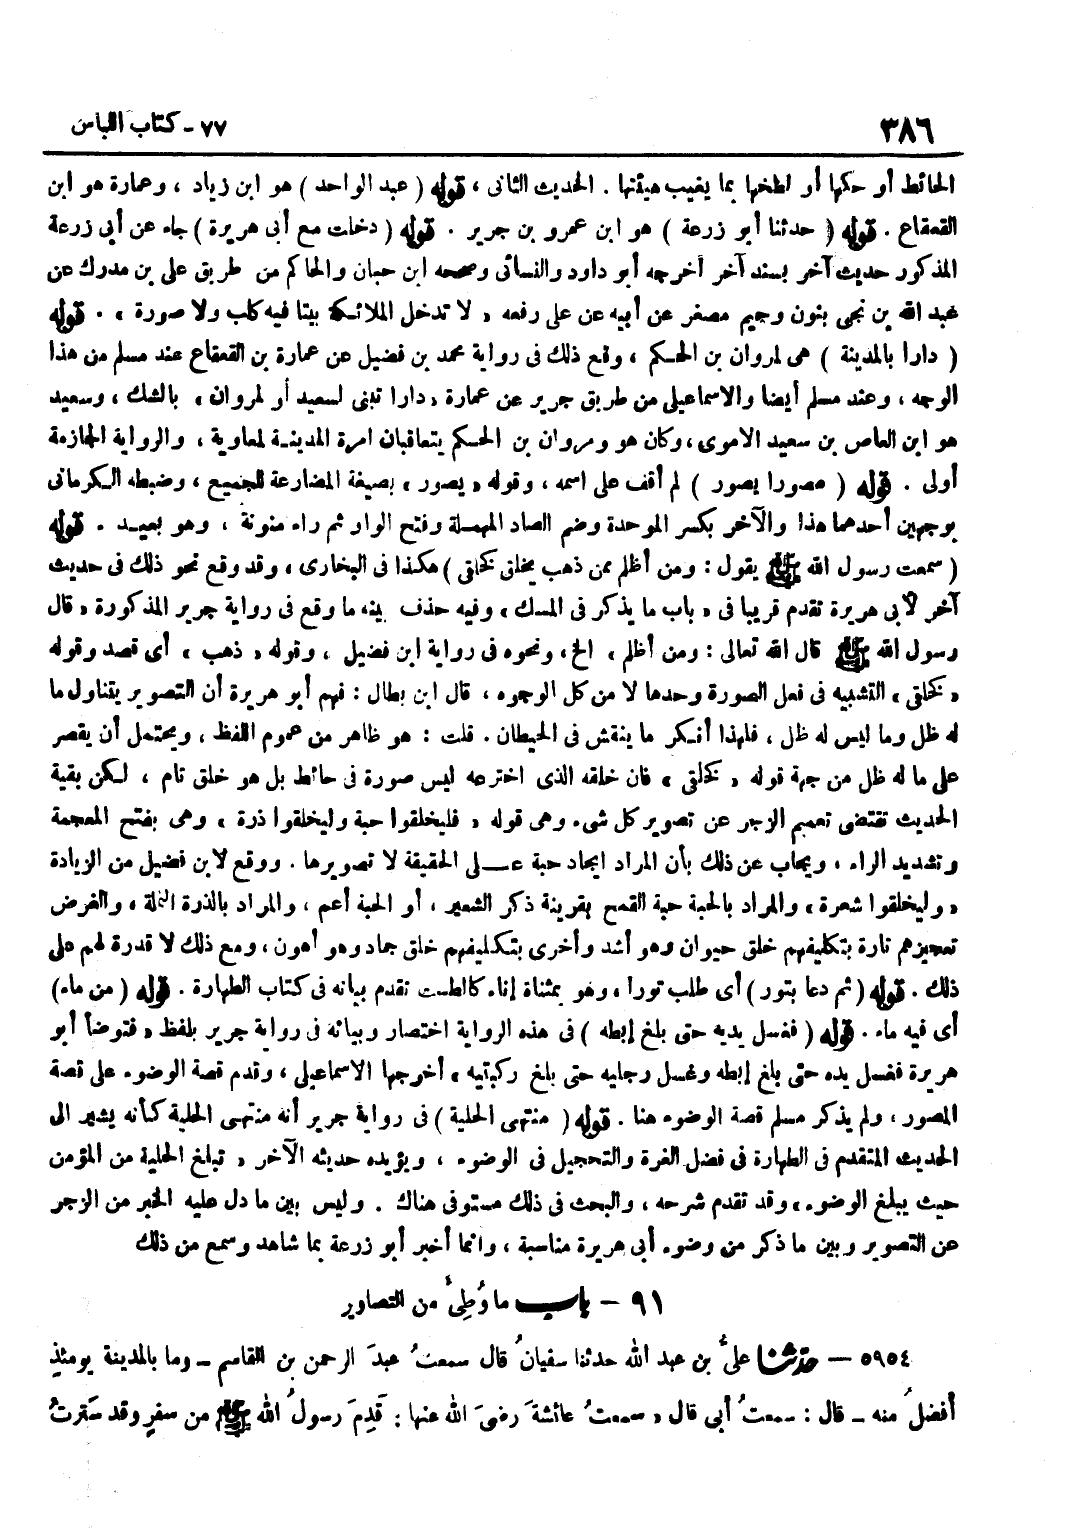 ٣٨٦
٧٧ - كتاب اللباس
الحائط أو حكها أو لطخها بما يغيب هيئتها . الحديث الثانى ، قوله ( عبد الواحد ) هو ابن زياد ، وعمارة هو ابن
القعقاع . قوله ( حدثنا أبو زرعة ) هو ابن عمرو بن جرير . قوله ( دخلت مع أبى هريرة ) جاء عن أبى زرعة
المذكور حديث آخر بسند آخر أخرجه أبو داود والنسائى وصححه ابن حبان والحاكم من طريق على بن مدرك عن
عبد الله بن نجى بنون وجيم مصغر عن أبيه عن على رفعه « لا تدخل الملائكة بيتا فيه كلب ولا صورة » . قوله
( دارا بالمدينة ) هى لمروان بن الحكم ، وقع ذلك فى رواية محمد بن فضيل عن عمارة بن القعقاع عند مسلم من هذا
الوجه ، وعند مسلم أيضا والاسماعيلى من طريق جرير عن عمارة « دارا تبنى لسعيد أو لمروان » بالشك ، وسعيد
هو ابن العاص بن سعيد الاموى ، وكان هو ومروان بن الحكم يتعاقبان امرة المدينة لمعاوية ، والرواية الجازمة
أولى . قوله ( مصورا يصور ) لم أقف على اسمه ، وقوله « يصور » بصيغة المضارعة للجميع ، وضبطه الكرمانى
بوجهين أحدهما هذا والآخر بكسر الموحدة وضم الصاد المهملة وفتح الواو ثم راء منونة ، وهو بعيد . قوله
( سمعت رسول الله ﷺ يقول : ومن أظلم ممن ذهب يخلق كخلقى ) هكذا فى البخارى ، وقد وقع نحو ذلك فى حديث
آخر لأبى هريرة تقدم قريبا فى « باب ما يذكر فى المسك » وفيه حذف بينه ما وقع فى رواية جرير المذكورة « قال
رسول الله ﷺ قال الله تعالى : ومن أظلم » الخ ، ونحوه فى رواية ابن فضيل ، وقوله « ذهب » أى قصد وقوله
« كخلقى » التشبيه فى فعل الصورة وحدها لا من كل الوجوه ، قال ابن بطال : فهم أبو هريرة أن التصوير يتناول ما
له ظل وما ليس له ظل ، فلهذا أنكر ما ينقش فى الحيطان . قلت : هو ظاهر من عموم اللفظ ، ويحتمل أن يقصر
على ما له ظل من جهة قوله « كخلقى » فان خلقه الذى اخترعه ليس صورة فى حائط بل هو خلق تام ، لكن بقية
الحديث تقتضى تعميم الزجر عن تصوير كل شىء وهى قوله « فليخلقوا حبة وليخلقوا ذرة » وهى بفتح المعجمة
وتشديد الراء ، ويجاب عن ذلك بأن المراد ايجاد حبة على الحقيقة لا تصويرها . ووقع لابن فضيل من الزيادة
« وليخلقوا شعرة » والمراد بالحبة حبة القمح بقرينة ذكر الشعير ، أو الحبة أعم ، والمراد بالذرة النملة ، والغرض
تعجيزهم تارة بتكليفهم خلق حيوان وهو أشد وأخرى بتكليفهم خلق جماد وهو أهون ، ومع ذلك لا قدرة لهم على
ذلك . قوله ( ثم دعا بتور ) أى طلب تورا ، وهو بمثناة إناء كالطست تقدم بيانه فى كتاب الطهارة . قوله ( من ماء )
أى فيه ماء . قوله ( فغسل يديه حتى بلغ إبطه ) فى هذه الرواية اختصار وبيانه فى رواية جرير بلفظ « فتوضأ أبو
هريرة فغسل يده حتى بلغ إبطه وغسل رجليه حتى بلغ ركبتيه » أخرجها الاسماعيلى ، وقدم قصة الوضوء على قصة
المصور ، ولم يذكر مسلم قصة الوضوء هنا . قوله ( منتهى الحلية ) فى رواية جرير أنه منتهى الحلية كأنه يشير الى
الحديث المتقدم فى الطهارة فى فضل الغرة والتحجيل فى الوضوء ، ويؤيده حديثه الآخر « تبلغ الحلية من المؤمن
حيث يبلغ الوضوء » وقد تقدم شرحه ، والبحث فى ذلك مستوفى هناك . وليس بين ما دل عليه الخبر من الزجر
عن التصوير وبين ما ذكر من وضوء أبى هريرة مناسبة ، وانما أخبر أبو زرعة بما شاهد وسمع من ذلك
٩١ - باب ما وُطِئَ من التصاوير
٥٩٥٤ - حدّثنا علىُّ بن عبد الله حدثنا سفيانُ قال سمعتُ عبدَ الرحمن بن القاسم - وما بالمدينة يومئذٍ
أفضلُ منه - قال : سمعتُ أبى قال « سمعتُ عائشةَ رضىَ الله عنها : قَدِمَ رسولُ الله ﷺ من سفرٍ وقد سَترتُ